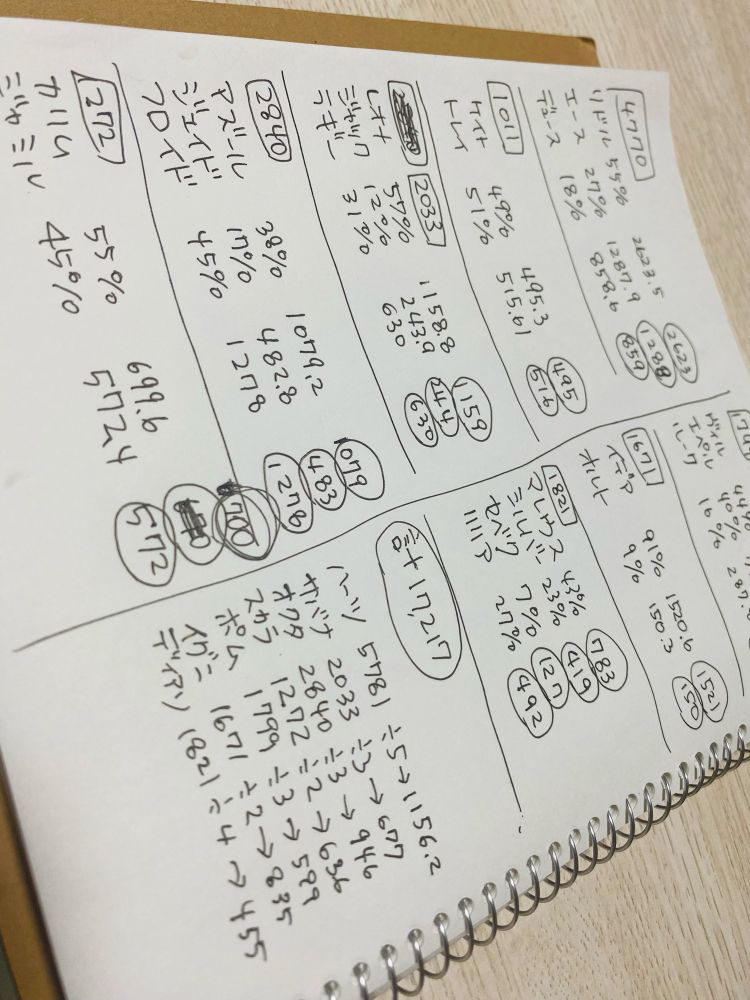 4770
リドル 55% 2623.5 2623
エース 27% 1287.9 1288
デュース 18% 858.6 859
1011
ケイト 49% 495.3 495
トレイ 51% 515.61 516
2033
レオナ 57% 1158.8 1159
ジャック 12% 243.9 244
ラギー 31% 630 630
2840
アズール 38% 1079.2 1079
ジェイド 17% 482.8 483
フロイド 45% 1278 1278
1272
カリム 55% 699.6 700
ジャミル 45% 572.4 572
ルーク
エペル 40%
ヴィル 44%
1671
イデア 91%
オルト 9%
1520.6
150.3
マレウス 43% 783
シルバー 23% 419
セベク 7% 127
リリア 27% 492
計17,217
ハーツ 5781 ÷5→1156.2
サバナ 2033 ÷3→677
オクタ 2840 ÷3→946
スカラ 1272 ÷2→636
ポム 1799 ÷3→599
イグニ 1671 ÷2→835
ディアソ 1821 ÷4→455